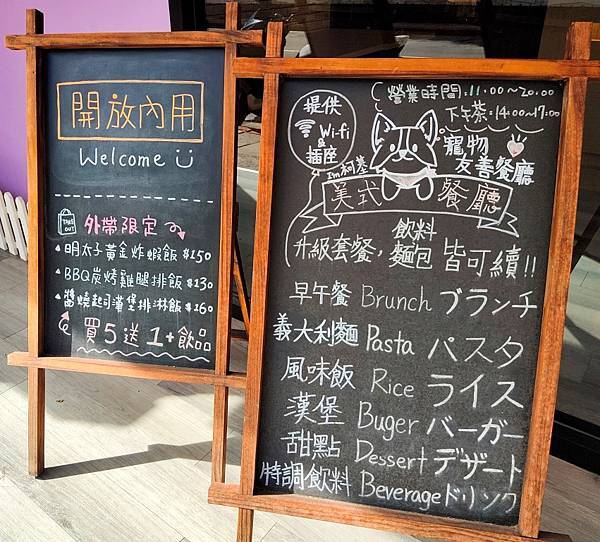 開放內用
Welcome
TAKE OUT
外帶限定
明太子黃金炸蝦飯 $150
BBQ炭烤雞腿排飯 $130
醬燒起司漢堡排淋飯 $160
買5送1+飲品
營業時間:11:00~20:00
下午茶:14:00~17:00
提供
Wi-fi
&
插座
寵物
友善餐廳
I'm柯基
美式餐廳
升級套餐,飲料
麵包 皆可續!!
早午餐 Brunch ブランチ
義大利麵 Pasta パスタ
風味飯 Rice ライス
漢堡 Buger バーガー
甜點 Dessert デザート
特調飲料 Beverage ドリンク